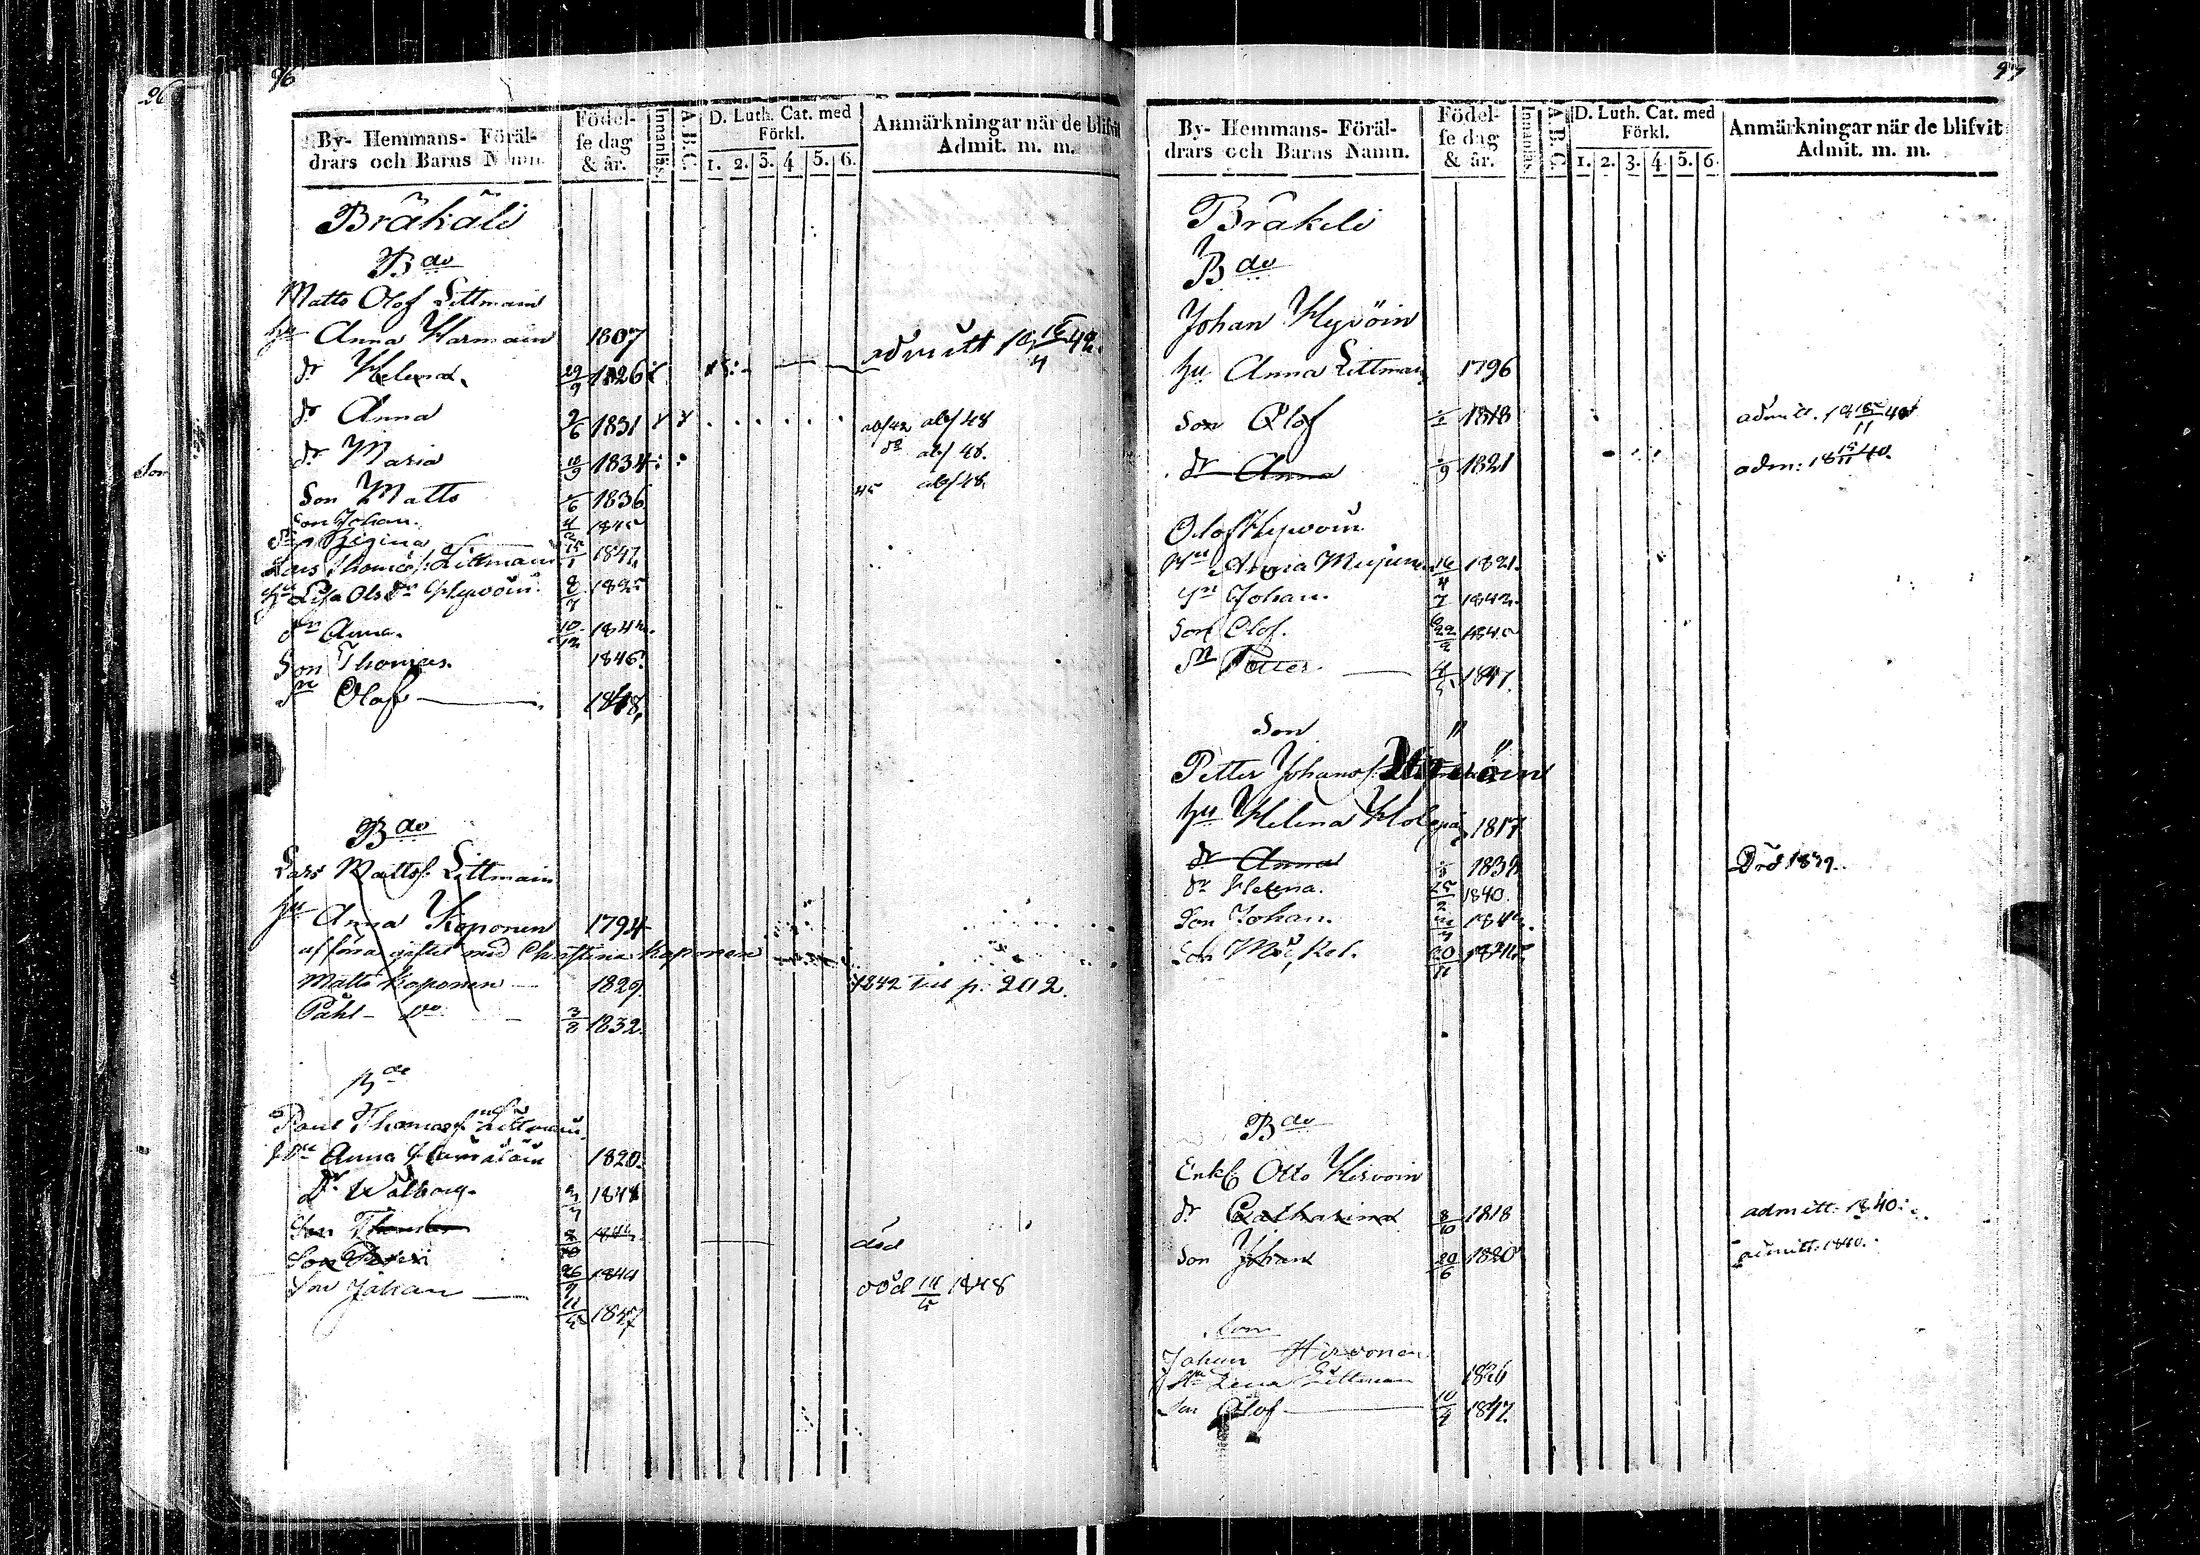 96
By- Hemmans- Föräl-
drars och Barns Namn.
Födel-
se dag
& år.
Innanläs.
A.B.C.
D. Luth. Cat. med
Förkl.
1. 2. 3. 4 5. 6.
Anmärkningar när de blifvit
Admit. m. m.
Bräkäli
B do
Matts Olof Littmain
hu Anna Karmain 1807
dr Helena 29/9 1826 admitt 18 15/4 42.
dr Anna 2/6 1831 abs 42 abs 48
dr Maria 18/9 1834 do abs 48.
Son Matts 1836 45 abs 48.
Son Johan. 1845
dr Regina 15/1 1847
Lars Thomas: Littmain
hu Lisa Ols dr Hywöin. 8/7 1825
dr Anna. 10/12
Son Thomas. 1846.
Sn Olof 1848,
B do
Lars Matts: Littmain
hu Anna Koponen 1794
af förra giftet med Christina Koponen
Matts Koponen 1829. 1842 till p. 202.
Påhl do 3/8 1832.
B do
Paul Thomas: Littmain.
hu Anna 1820.
Dr Walborg. 1841
Son död
Son 26/9 1844 död 1848
Son Johan 11/5 1847
Son
97
By- Hemmans- Föräl-
drars och Barns Namn.
Födel-
se dag
& år.
Innanläs.
A.B.C.
D. Luth. Cat. med
Förkl.
1. 2. 3. 4. 5. 6.
Anmärkningar när de blifvit
Admit. m. m.
Bräkili
B do
Johan Hyvöin
hu Anna Littmain 1796
Son Olof 1818 admitt. 18 15/11 40
dr Anna 1821 adm: 18 15/11 40.
Olof Hywöin
hu Anna 16/4 1821.
Sn Johan. 1842.
Son Olof. 22/2 1845
Sn Petter. 4/5 1847.
Son
Petter Johans: Hyvöin
hu Helena 1817
dr Anna 1839 Död 1839.
dr Helena. 25/2 1840.
Son Johan.
Son Mickel. 20/11
B do
Enkl Otto Hirvoin
dr Catharina 8/10 1818 admitt: 1840:
Son Johan 20/6 1820 admitt: 1840.
Son
Johan Hirvonen
hu Lena Littmain 1826
Son Olof 10/4 1847.